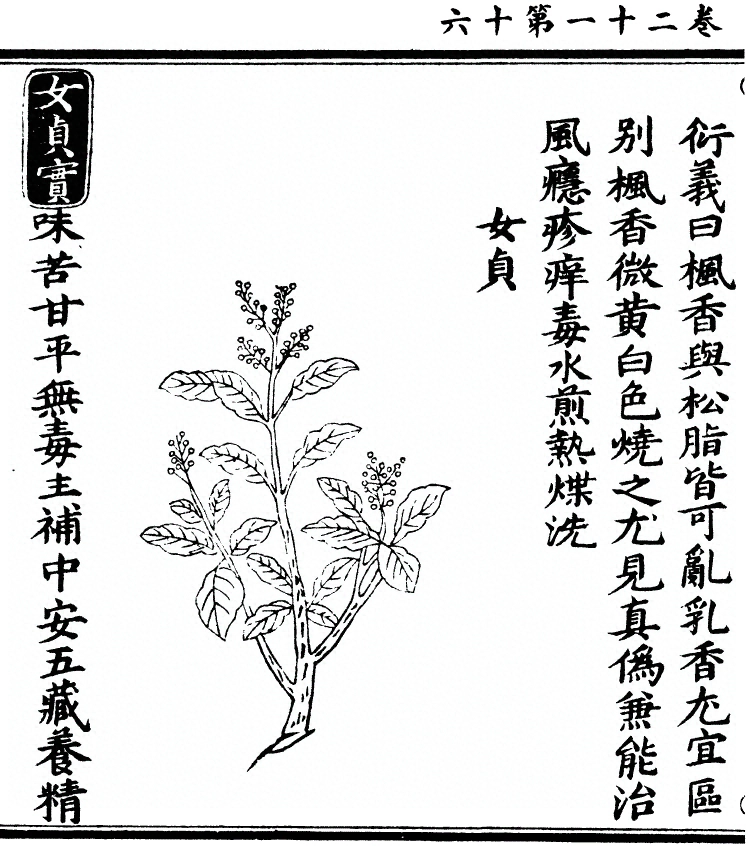 卷二十一第十六
衍義曰楓香與松脂皆可亂乳香尤宜區
別楓香微黃白色燒之尤見真僞兼能治
風癮疹痒毒水煎熱煠洗
女貞
女貞實味苦甘平無毒主補中安五藏養精